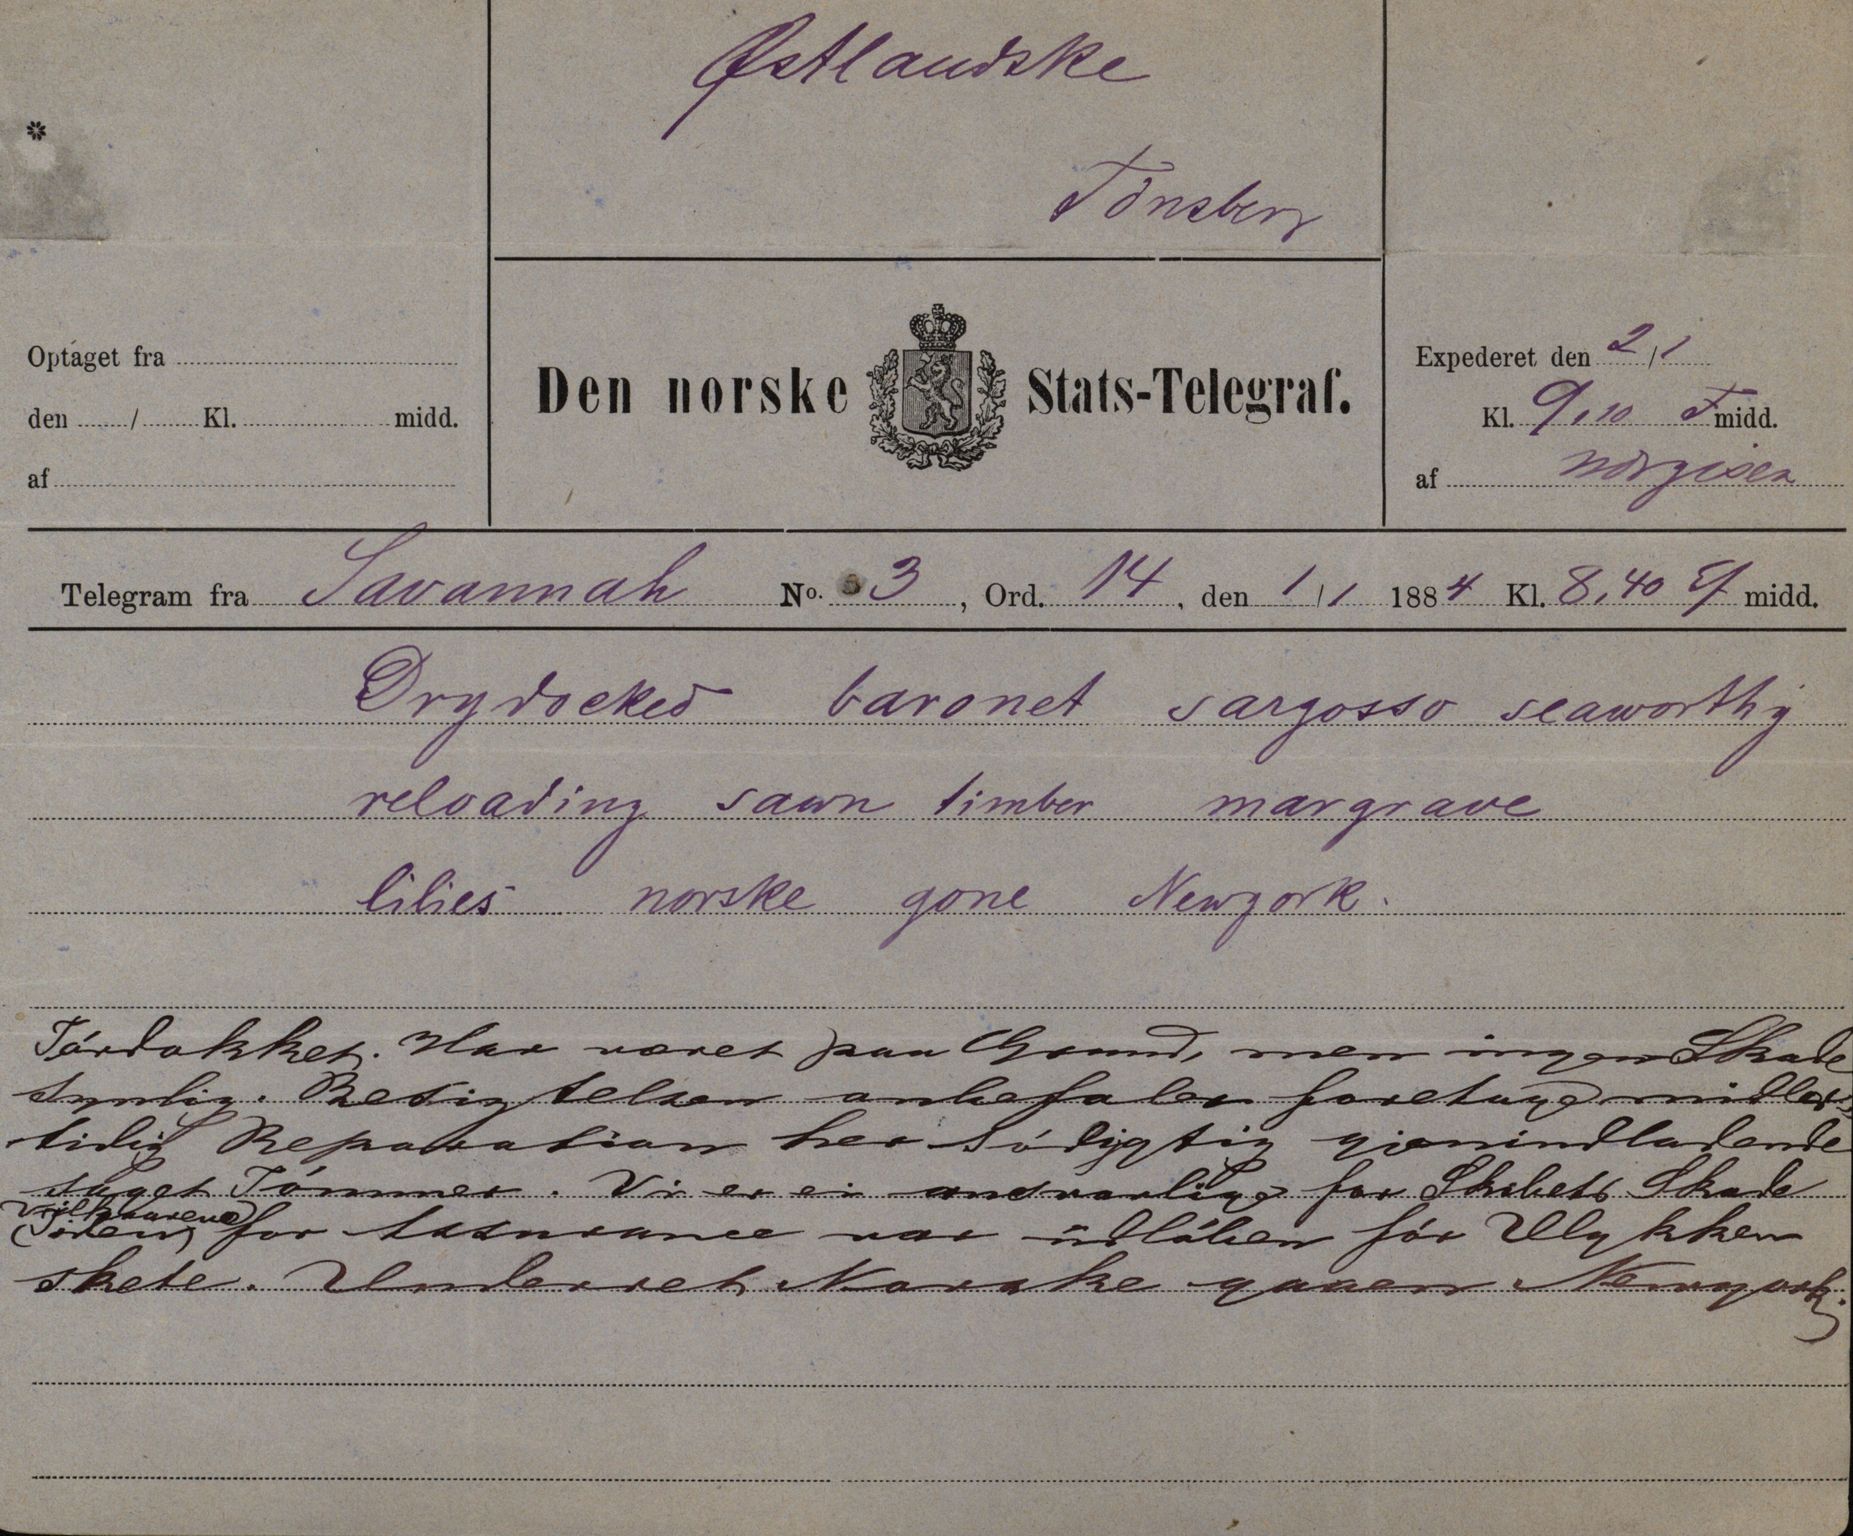 Østlandske
Tönsberg
*
Optaget fra
den / Kl. midd.
af
Den norske Stats-Telegraf.
Expederet den 2/1
Kl. 9,10 F midd.
af
Telegram fra Savannah No. 3, Ord. 14, den 1/1 1884 Kl. 8,40 Ef midd.
Drydocked baronet sargosso seaworthy
reloading sawn timber margrave
lilies norske gone Newyork.
Tórdokket. Har været paa Grund, men ingen Skade
synlig. Besigtelsen anbefaler foretage midler
tidig Reparation her Södygtig gjenindladende
saget Tómmer. Vi er ei ansvarlige for Skibets Skade
Vilkaarene
(Tiden) for Assurance var üdlóben för Ulykken
skete. Underret Norske gaaen Newyork.